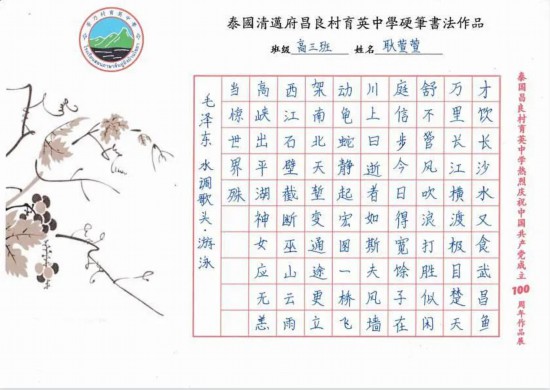 泰國清邁府昌良村育英中學硬筆書法作品
班級 高三班 姓名 耿萱萱
泰国昌良村育英中学热烈庆祝中国共产党成立100周年作品展
才饮长沙水又食武昌鱼
万里长江横渡极目楚天
舒不管风吹浪打胜似闲
庭信步今日得宽馀子在
川上曰逝者如斯夫风墙
动龟蛇静起宏图一桥飞
架南北天堑变通途更立
西江石壁截断巫山云雨
高峡出平湖神女应无恙
当惊世界殊
毛泽东 水调歌头·游泳